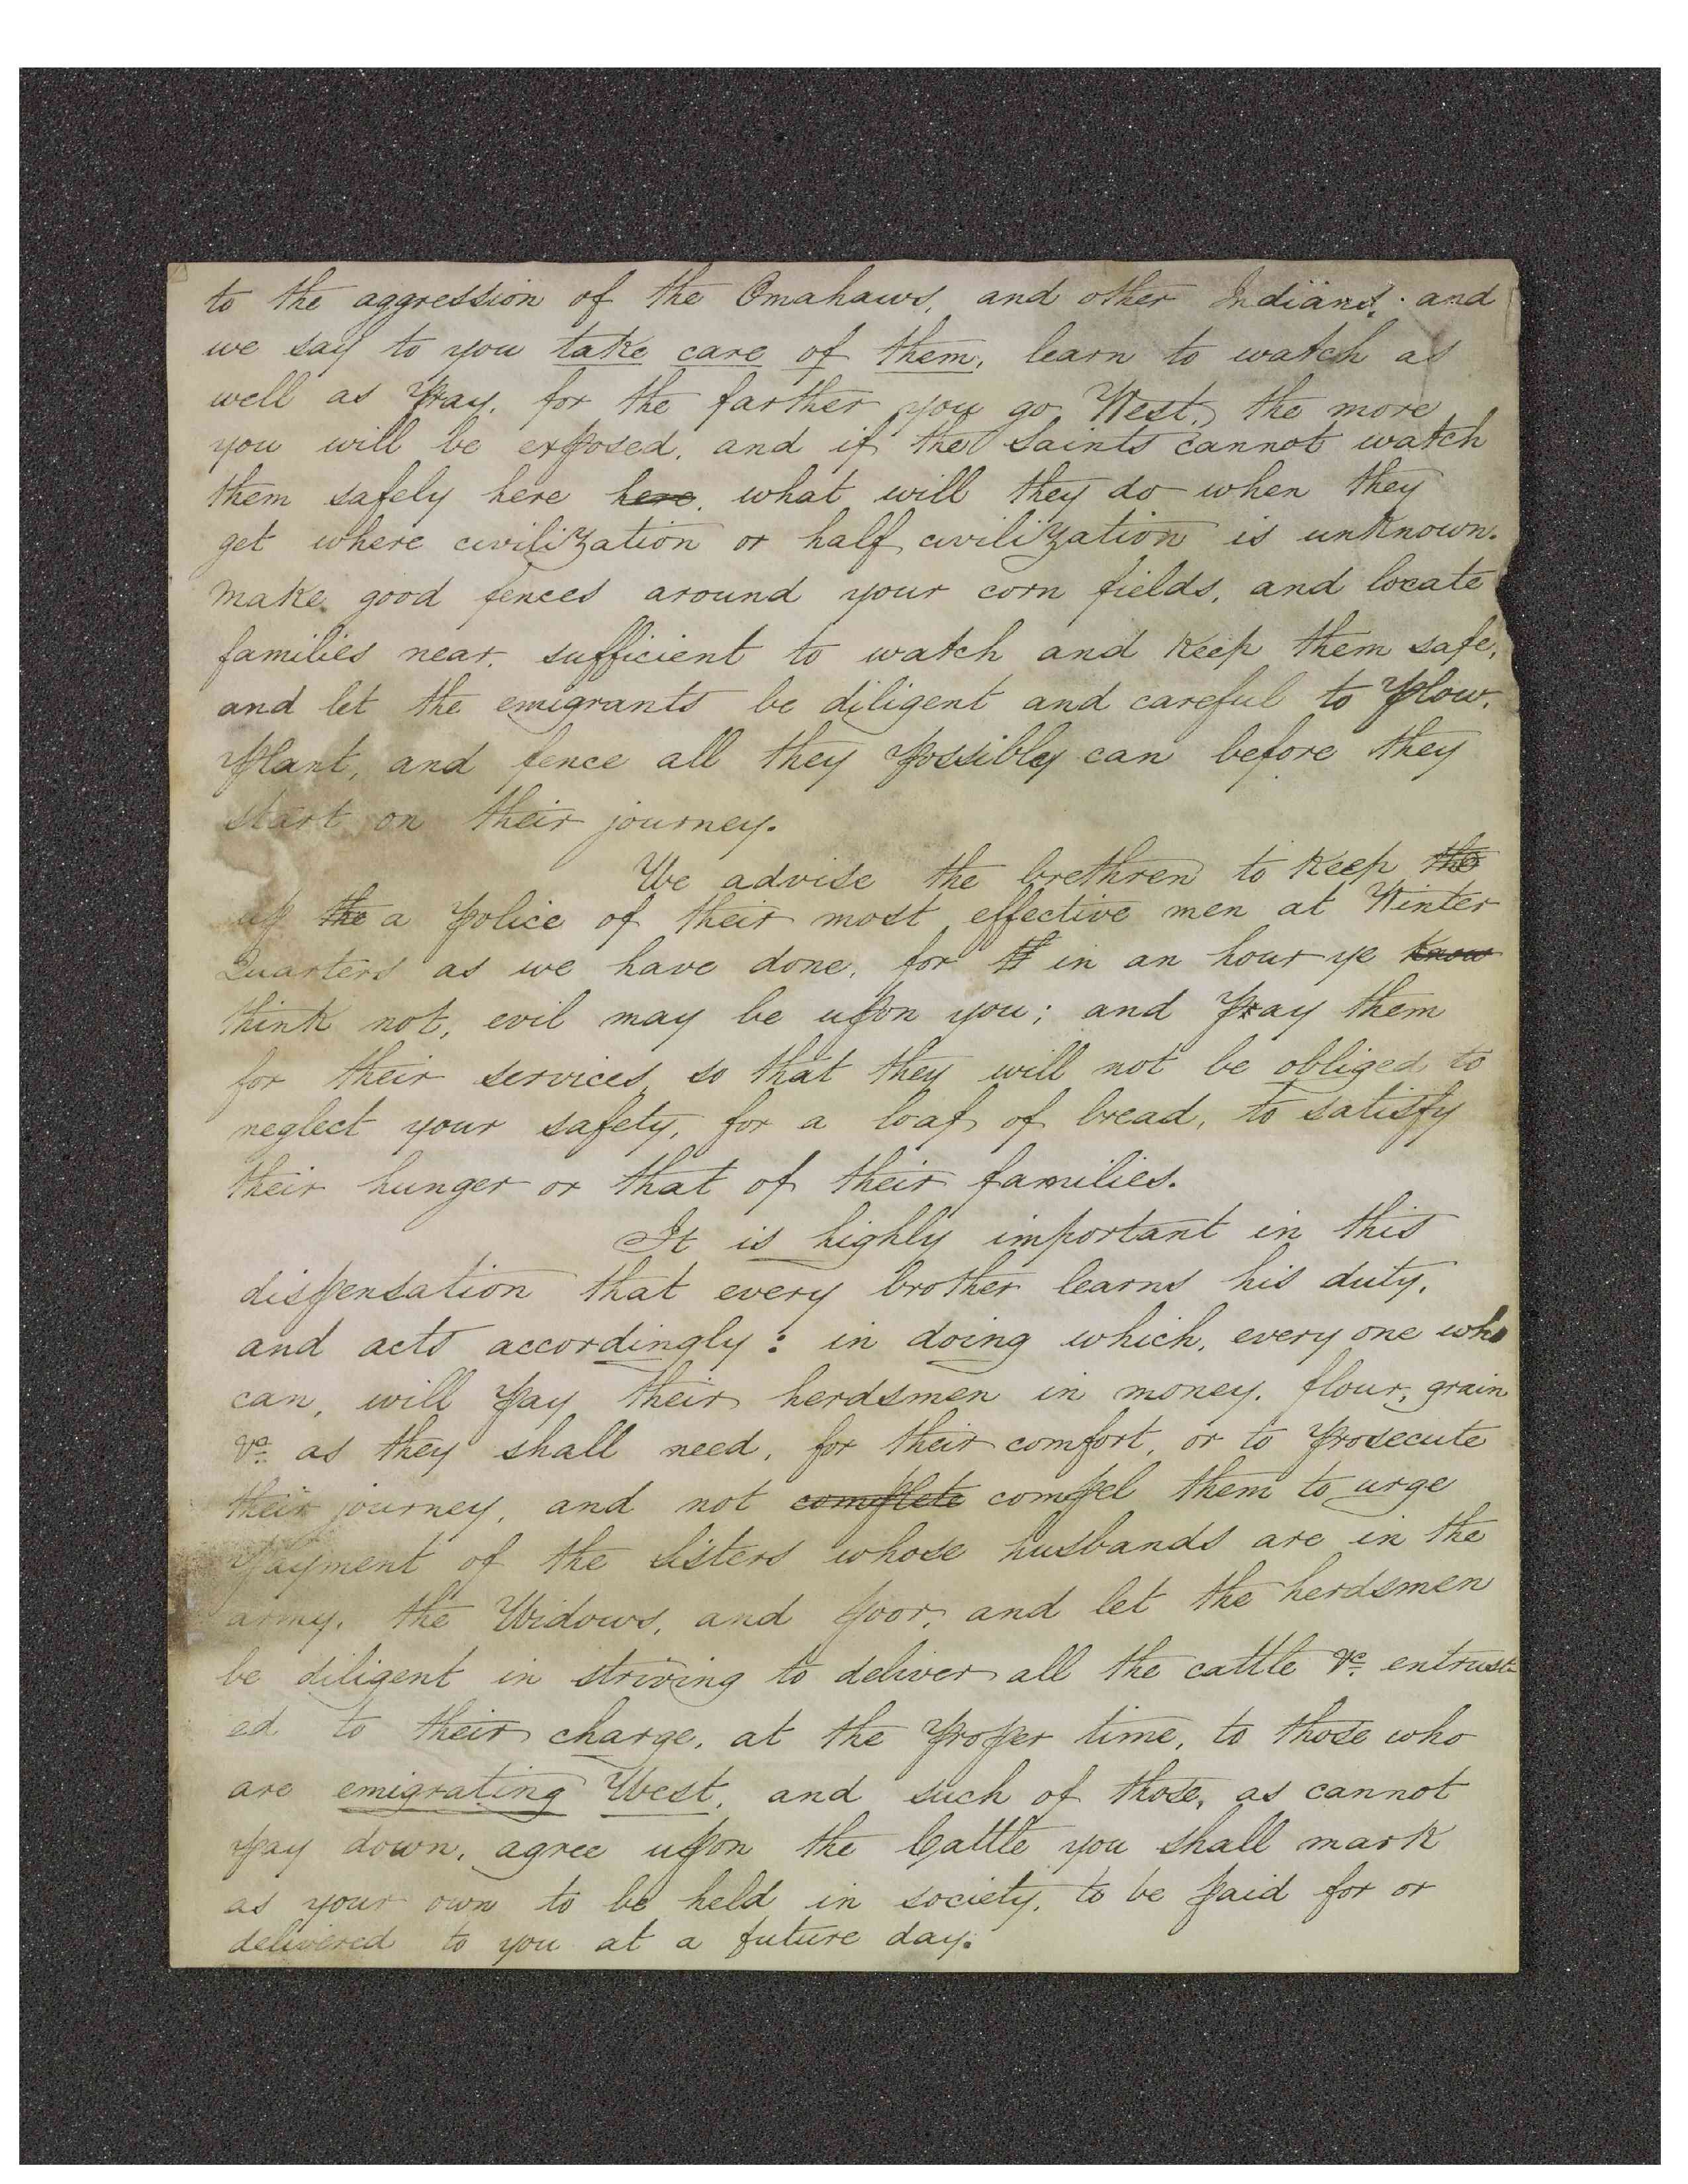 to the aggression of the Omahaws, and other Indians; and
we say to you take care of them, learn to watch as
well as Pray, for the farther you go West, the more
you will be exposed, and if the Saints cannot watch
them safely here here, what will they do when they
get where civilization or half civilization is unknown.
Make good fences around your corn fields, and locate
families near, sufficient to watch and keep them safe,
and let the emigrants be diligent and careful to Plow,
Plant, and fence all they Possibly can before they
start on their journey.
We advise the brethren to keep the
up the a Police of their most effective men at Winter
Quarters as we have done, for in an hour ye know
think not, evil may be upon you; and Pay them
for their services, so that they will not be obliged to
neglect your safety, for a loaf of bread, to satisfy
their hunger or that of their families.
It is highly important in this
dispensation that every brother learns his duty,
and acts accordingly: in doing which, every one who
can, will Pay their herdsmen in money, flour, grain
&c. as they shall need, for their comfort, or to Prosecute
their journey, and not complete compel them to urge
Payment of the Sisters whose husbands are in the
army, the Widows, and Poor, and let the herdsmen
be diligent in striving to deliver all the cattle &c. entrust-
ed to their charge, at the Proper time, to those who
are emigrating West, and such of those, as cannot
Pay down, agree upon the Cattle you shall mark
as your own to be held in society, to be Paid for or
delivered to you at a future day.